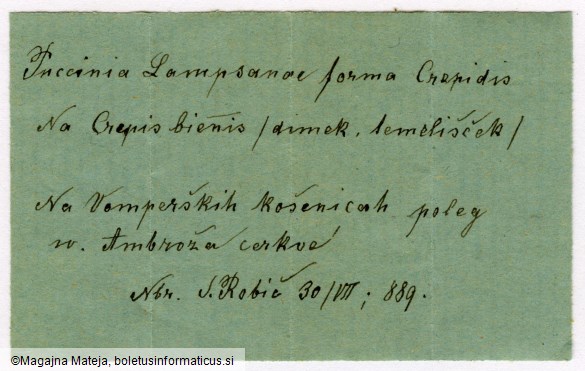 Puccinia Lampsanae forma Crepidis
Na Crepis bienis /dimek, lemelišček/
Na Vomperških košenicah poleg
sv. Ambroža cerkve
Nbr. S. Robič 30/VII; 889.
©Magajna Mateja, boletusinformaticus.si